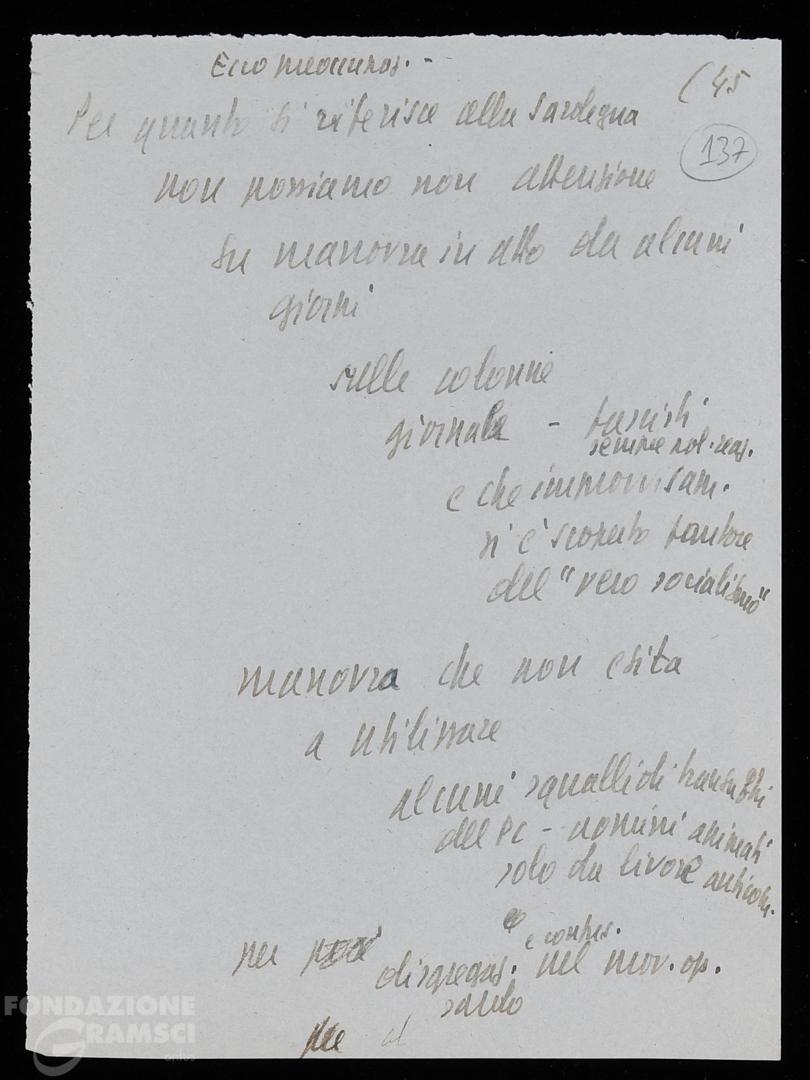 Ecco preoccupaz. -
(45
137
Per quanto si riferisce alla Sardegna
non possiamo non attenzione
su manovra in atto da alcuni
giorni
sulle colonne
giornale - fascisti
sempre pol. reaz.
e che improvvisam.
si è scoperto fautore
del "vero socialismo"
manovra che non esita
a utilizzare
alcuni squallidi transfughi
del PC - uomini animati
solo da livore anticom.
e confus.
per disgregaz. nel mov. op.
sardo
per
FONDAZIONE
GRAMSCI
onlus